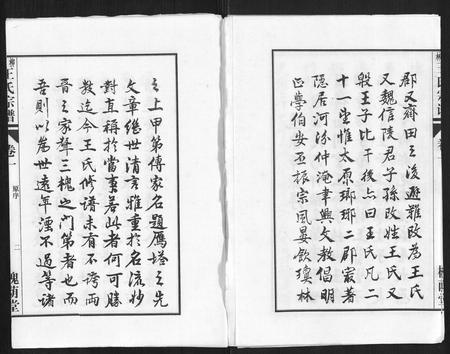 郡又齊田之後避難改為王氏
又魏信陵君子孫改姓王氏又
殷王子比干後亦曰王氏凡二
十一望惟太原瑯琊二郡最著
隱居河汾仲淹聿興文教倡明
正學伯安丕振宗風宴飲瓊林
之上甲第傳家名題雁塔之先
文章繼世清言雅重於名流妙
對直稱於當事若此者何可勝
數迄今王氏修譜未有不誇兩
晉之家聲三槐之門第者也而
吾則以為世遠年湮不過等諸
王氏宗譜
卷一
原序
二
槐蔭堂